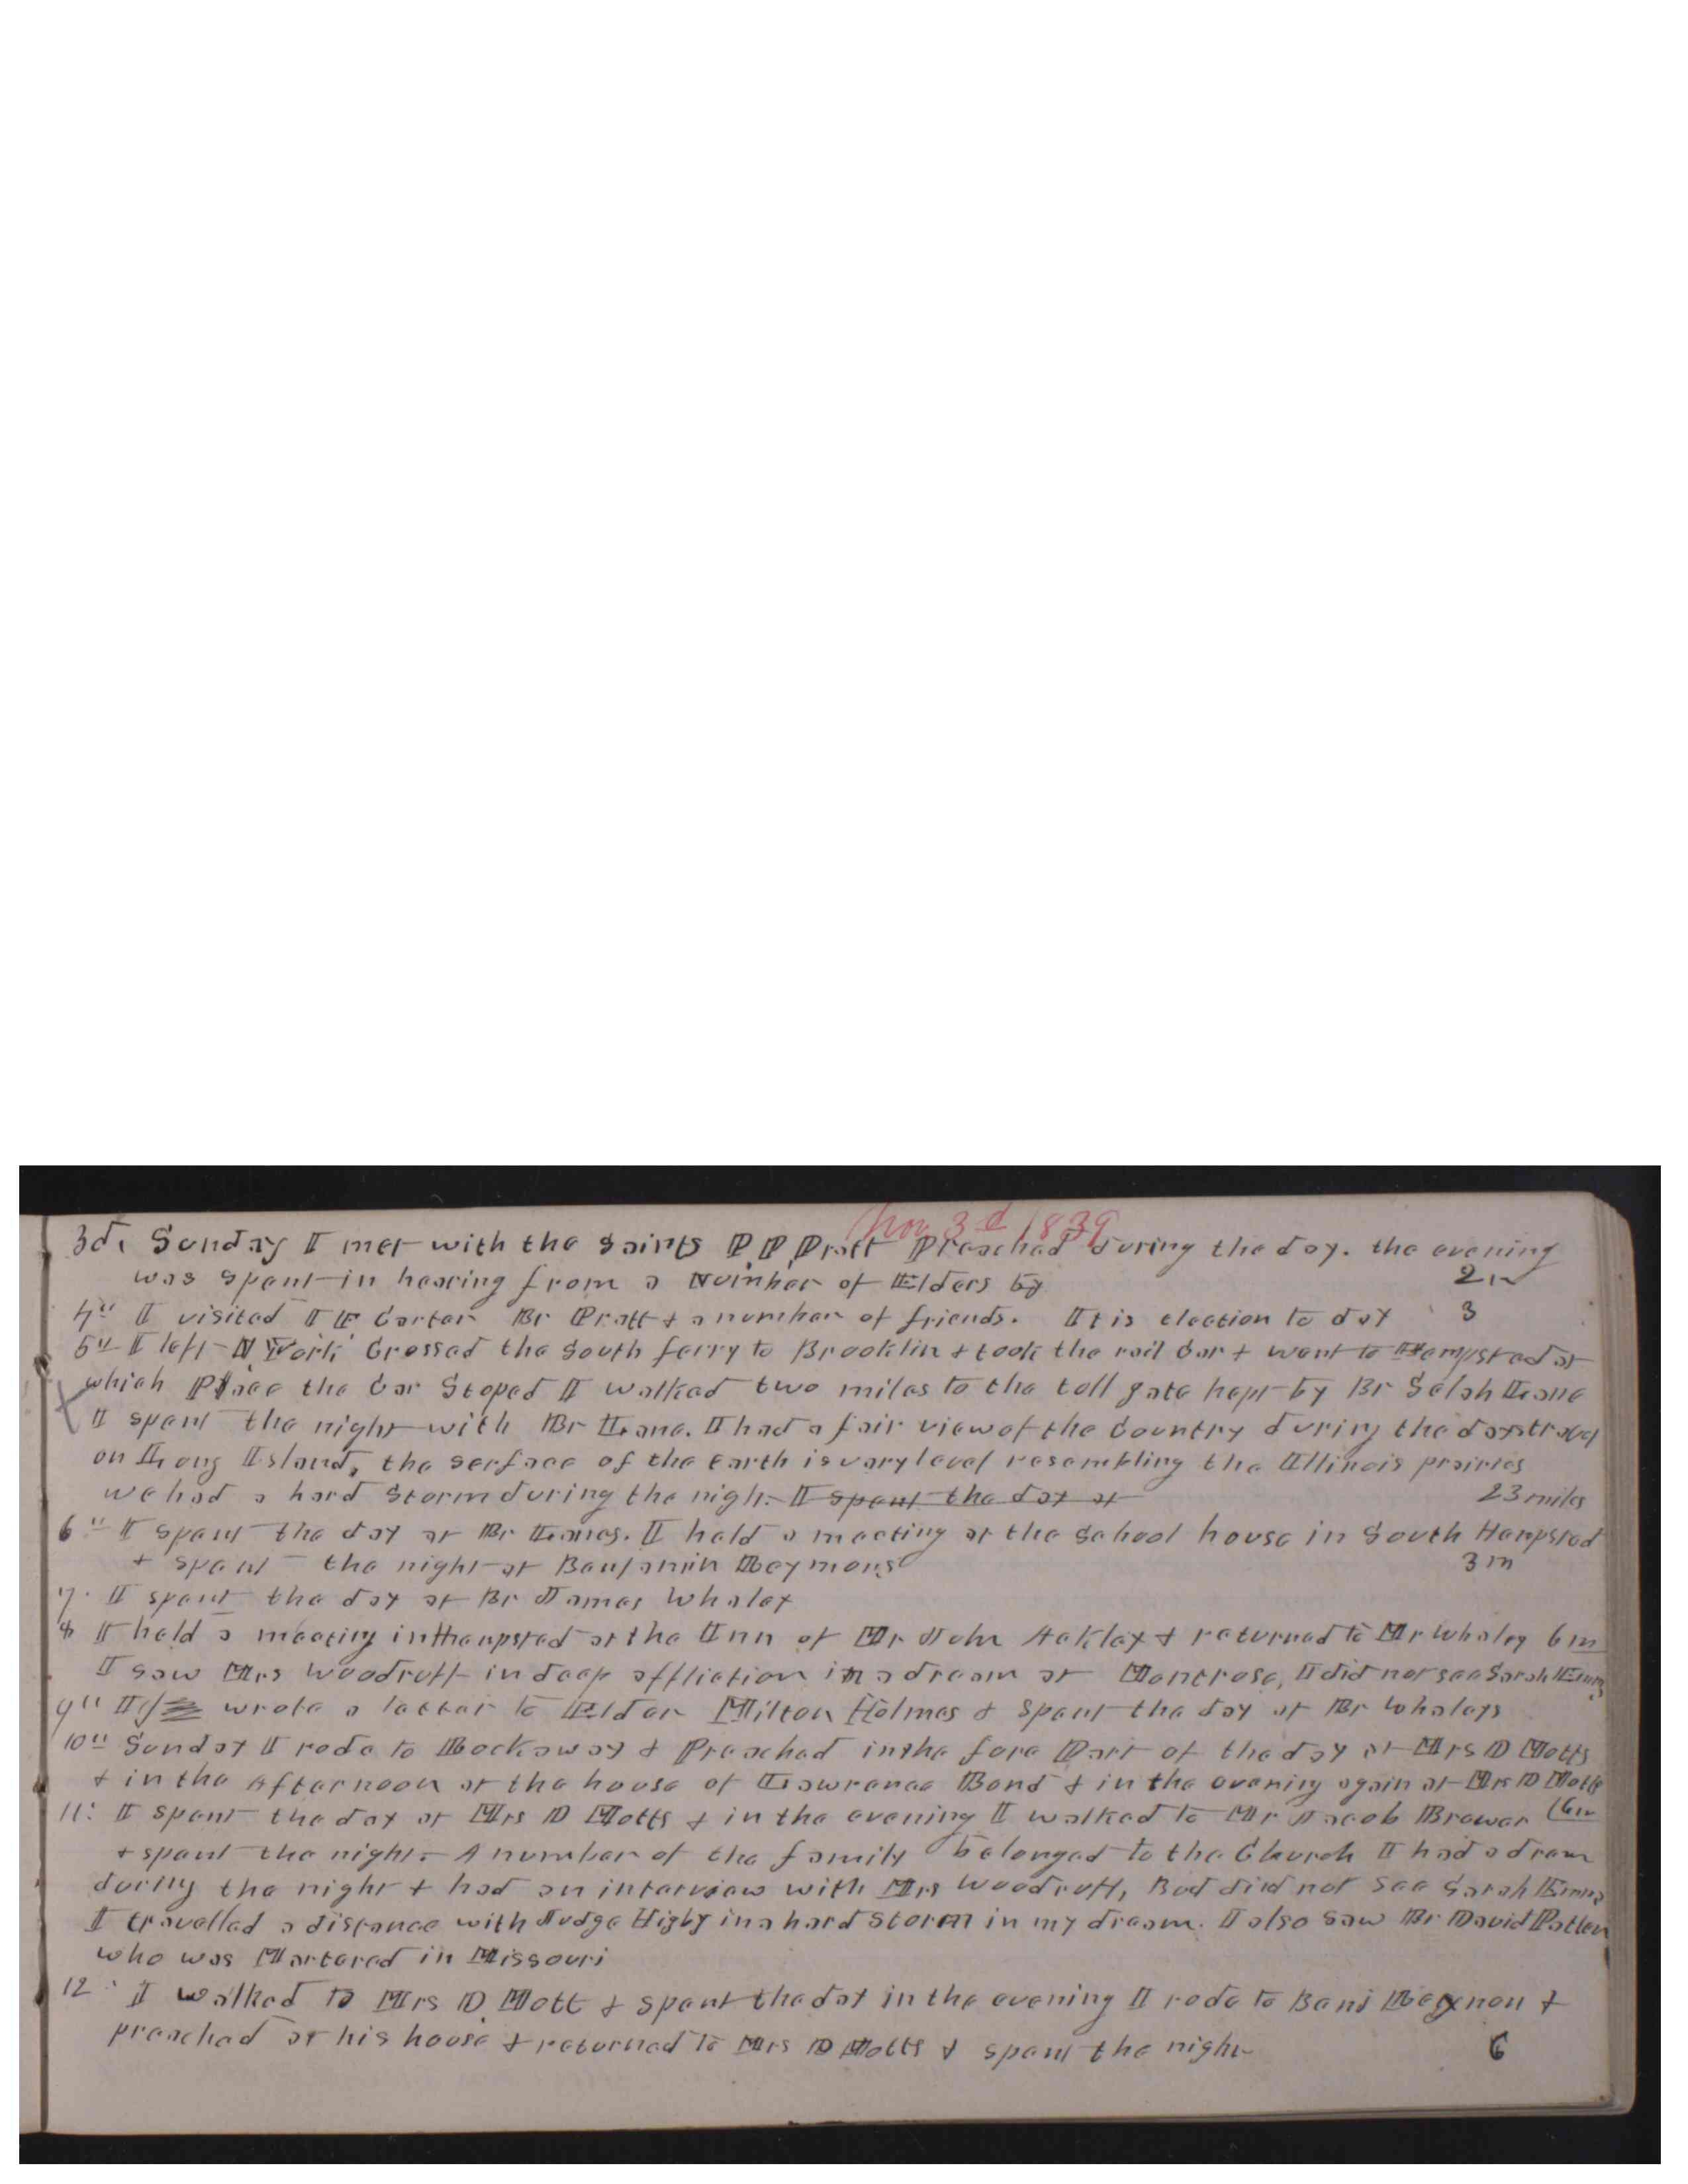 Nov 3d 1839
3d, Sunday I met with the Saints P P Pratt Preached during the day. the evening
was spent in hearing from a Number of Elders by 2 m
4" I visited I F Carter Br Pratt & a number of friends. It is election to day 3
5" I left N York Crossed the South ferry to Brooklin & took the rail Car & went to Hempsted at
which Place the Car Stoped I walked two miles to the toll gate kept by Br Selah Lane
I spent the night with Br Lane. I had a fair view of the Country during the days travel
on Long Island, the serface of the Earth is vary level resembling the Illinois prairies
we had a hard Storm during the night. I spent the day at 23 miles
6" I spent the day at Br Lanes. I held a meeting at the School house in South Hempsted
& spent the night at Benjamin 3 m
7. I spent the day at Br James Whaley
8 I held a meeting in Hempsted at the Inn of Mr John & returned to Mr Whaley 6 m
I saw Mrs Woodruff in deep affliction in a dream at Montrose, I did not see Sarah Emma
9" I wrote a letter to Elder Milton Holmes & Spent the day at Br Whaleys
10" Sunday I rode to Rockaway & Preached in the fore Part of the day at Mrs D Motts
& in the Afternoon at the house of Lawrance Bond & in the evening again at Mrs D Motts
11: I spent the day at Mrs D Motts & in the evening I walked to Mr Jacob Brower (6 m
& spent the night. A number of the family belonged to the Church I had a dream
during the night & had an interview with Mrs Woodruff, But did not See Sarah Emma
I travelled a distance with Judge Higby in a hard Storm in my dream. I also Saw Br David Patten
who was Martered in Missouri
12" I walked to Mrs D Mott & spent the day in the evening I rode to Benj &
preached at his house & returned to Mrs D Motts & spent the night 6